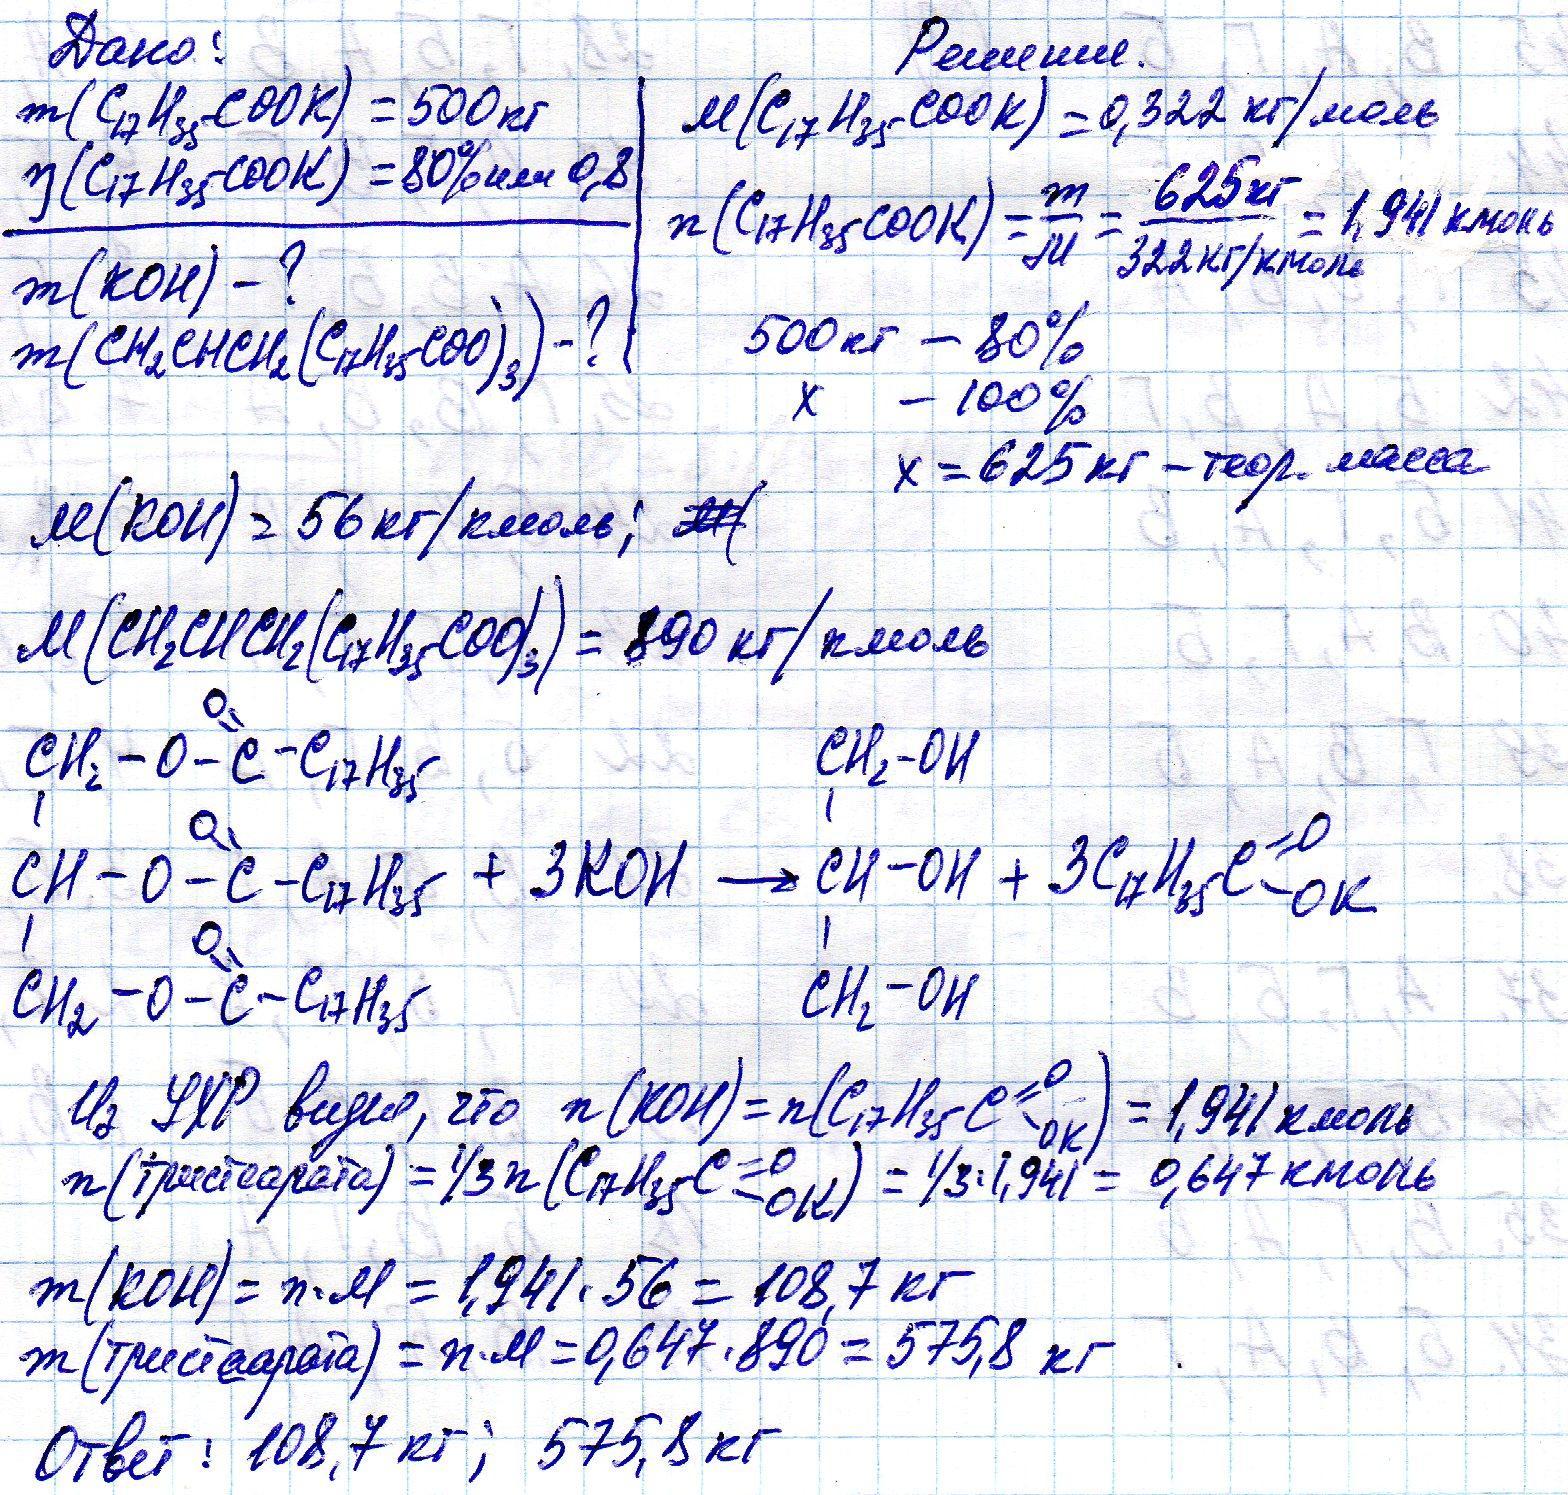 Дано:
m(C₁₇H₃₅COOK) = 500 кг
η(C₁₇H₃₅COOK) = 80% или 0,8
m(KOH) - ?
m(CH₂CHCH₂(C₁₇H₃₅COO)₃) - ?
Решение.
M(C₁₇H₃₅COOK) = 0,322 кг/моль
n(C₁₇H₃₅COOK) = m/M = 625 кг / 322 кг/кмоль = 1,941 кмоль
500 кг – 80%
x – 100%
x = 625 кг – теор. масса
M(KOH) = 56 кг/кмоль;
M(CH₂CHCH₂(C₁₇H₃₅COO)₃) = 890 кг/кмоль
O O
CH₂ – O – C – C₁₇H₃₅ CH₂–OH
O
CH – O – C – C₁₇H₃₅ + 3KOH → CH–OH + 3C₁₇H₃₅C=O–OK
CH₂ – O – C – C₁₇H₃₅ CH₂–OH
Из УХР видно, что n(KOH) = n(C₁₇H₃₅C=O–OK) = 1,941 кмоль
n(тристеарата) = 1/3 n(C₁₇H₃₅C=O–OK) = 1/3·1,941 = 0,647 кмоль
m(KOH) = n·M = 1,941·56 = 108,7 кг
m(тристеарата) = n·M = 0,647·890 = 575,8 кг
Ответ: 108,7 кг; 575,8 кг